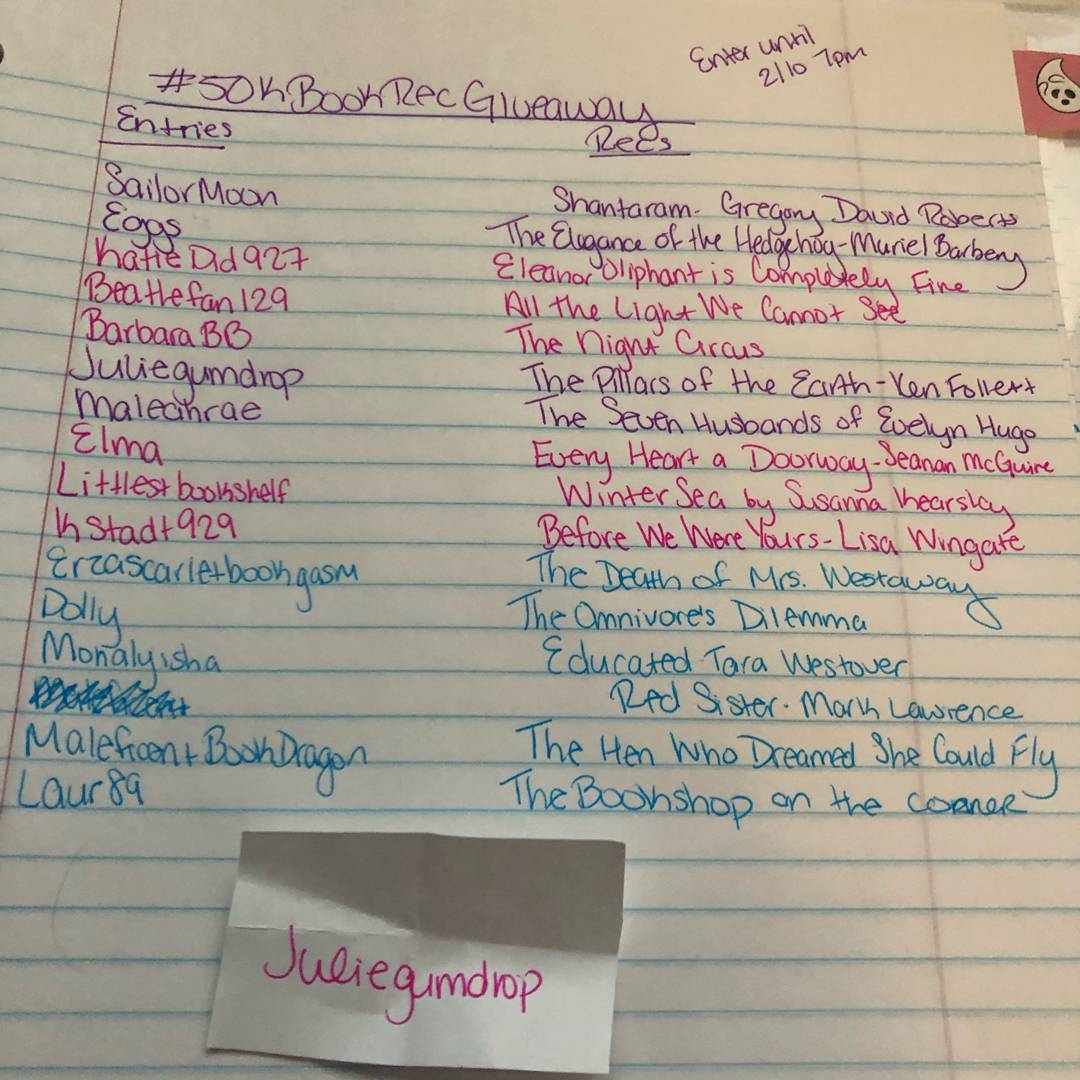 Enter until
2/10 7pm
#50KBookRecGiveaway
Entries Recs
SailorMoon Shantaram- Gregory David Roberts
Eggs The Elegance of the Hedgehog-Muriel Barbery
KatieDid927 Eleanor Oliphant is Completely Fine
Beatlefan129 All the Light We Cannot See
BarbaraBB The Night Circus
Juliegumdrop The Pillars of the Earth-Ken Follett
Malecihrae The Seven Husbands of Evelyn Hugo
Elma Every Heart a Doorway-Seanan McGuire
Littlestbookshelf Winter Sea by Susanna Kearsley
KStadt929 Before We Were Yours-Lisa Wingate
Erzascarletbookgasm The Death of Mrs. Westaway
Dolly The Omnivore's Dilemma
Monalyisha Educated-Tara Westover
Red Sister. Mark Lawrence
MaleficentBookDragon The Hen Who Dreamed She Could Fly
Laur89 The Bookshop on the corner
Juliegumdrop